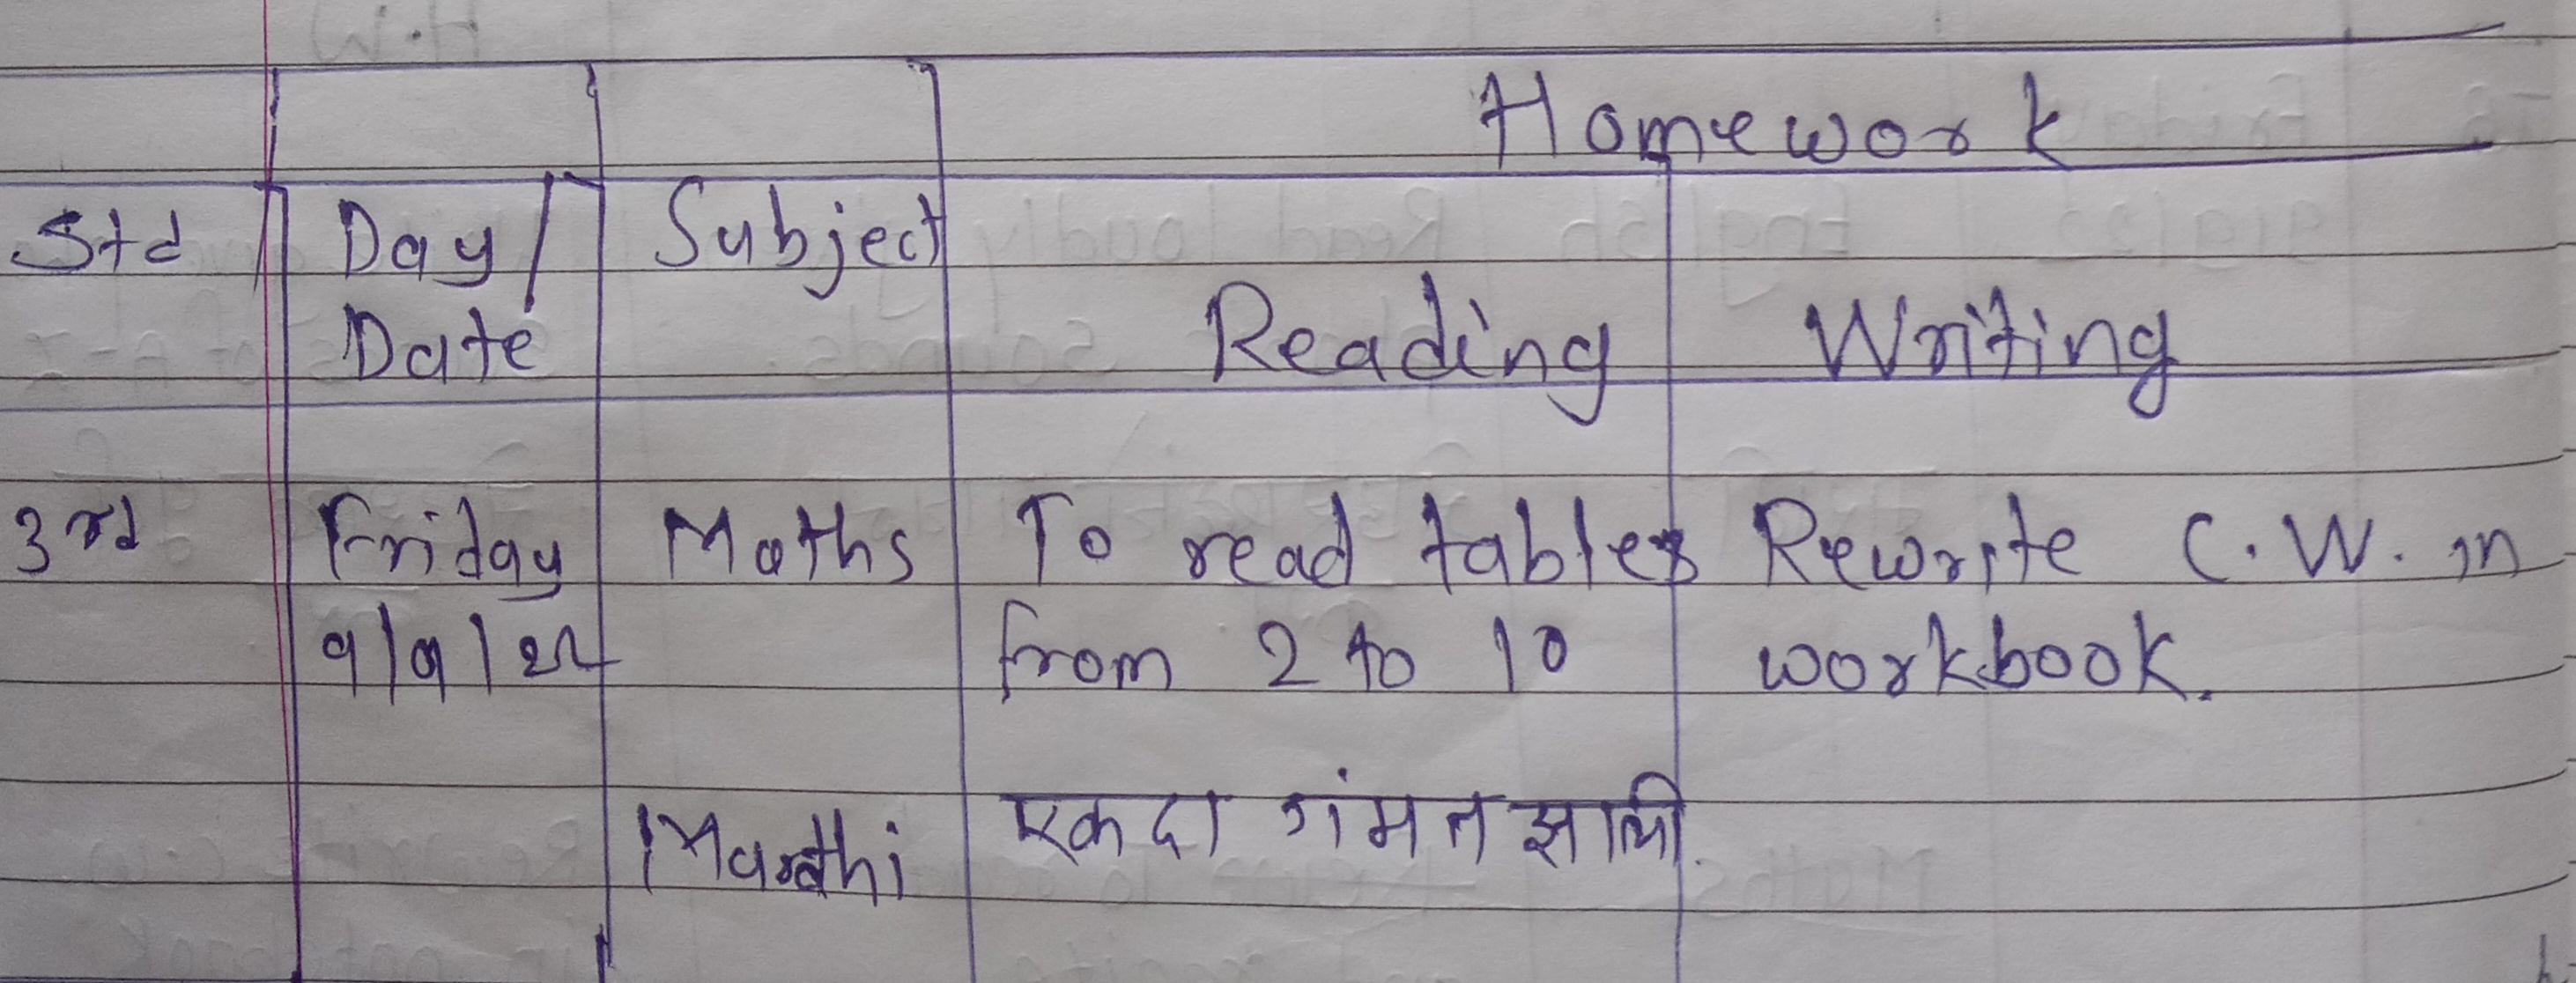 Homework
Std Day/ Subject
Date Reading Writing
3rd Friday Maths To read tables Rewrite C.W. in
9/9/22 from 2 to 10 workbook.
Marathi एकदा गंमत झाली.